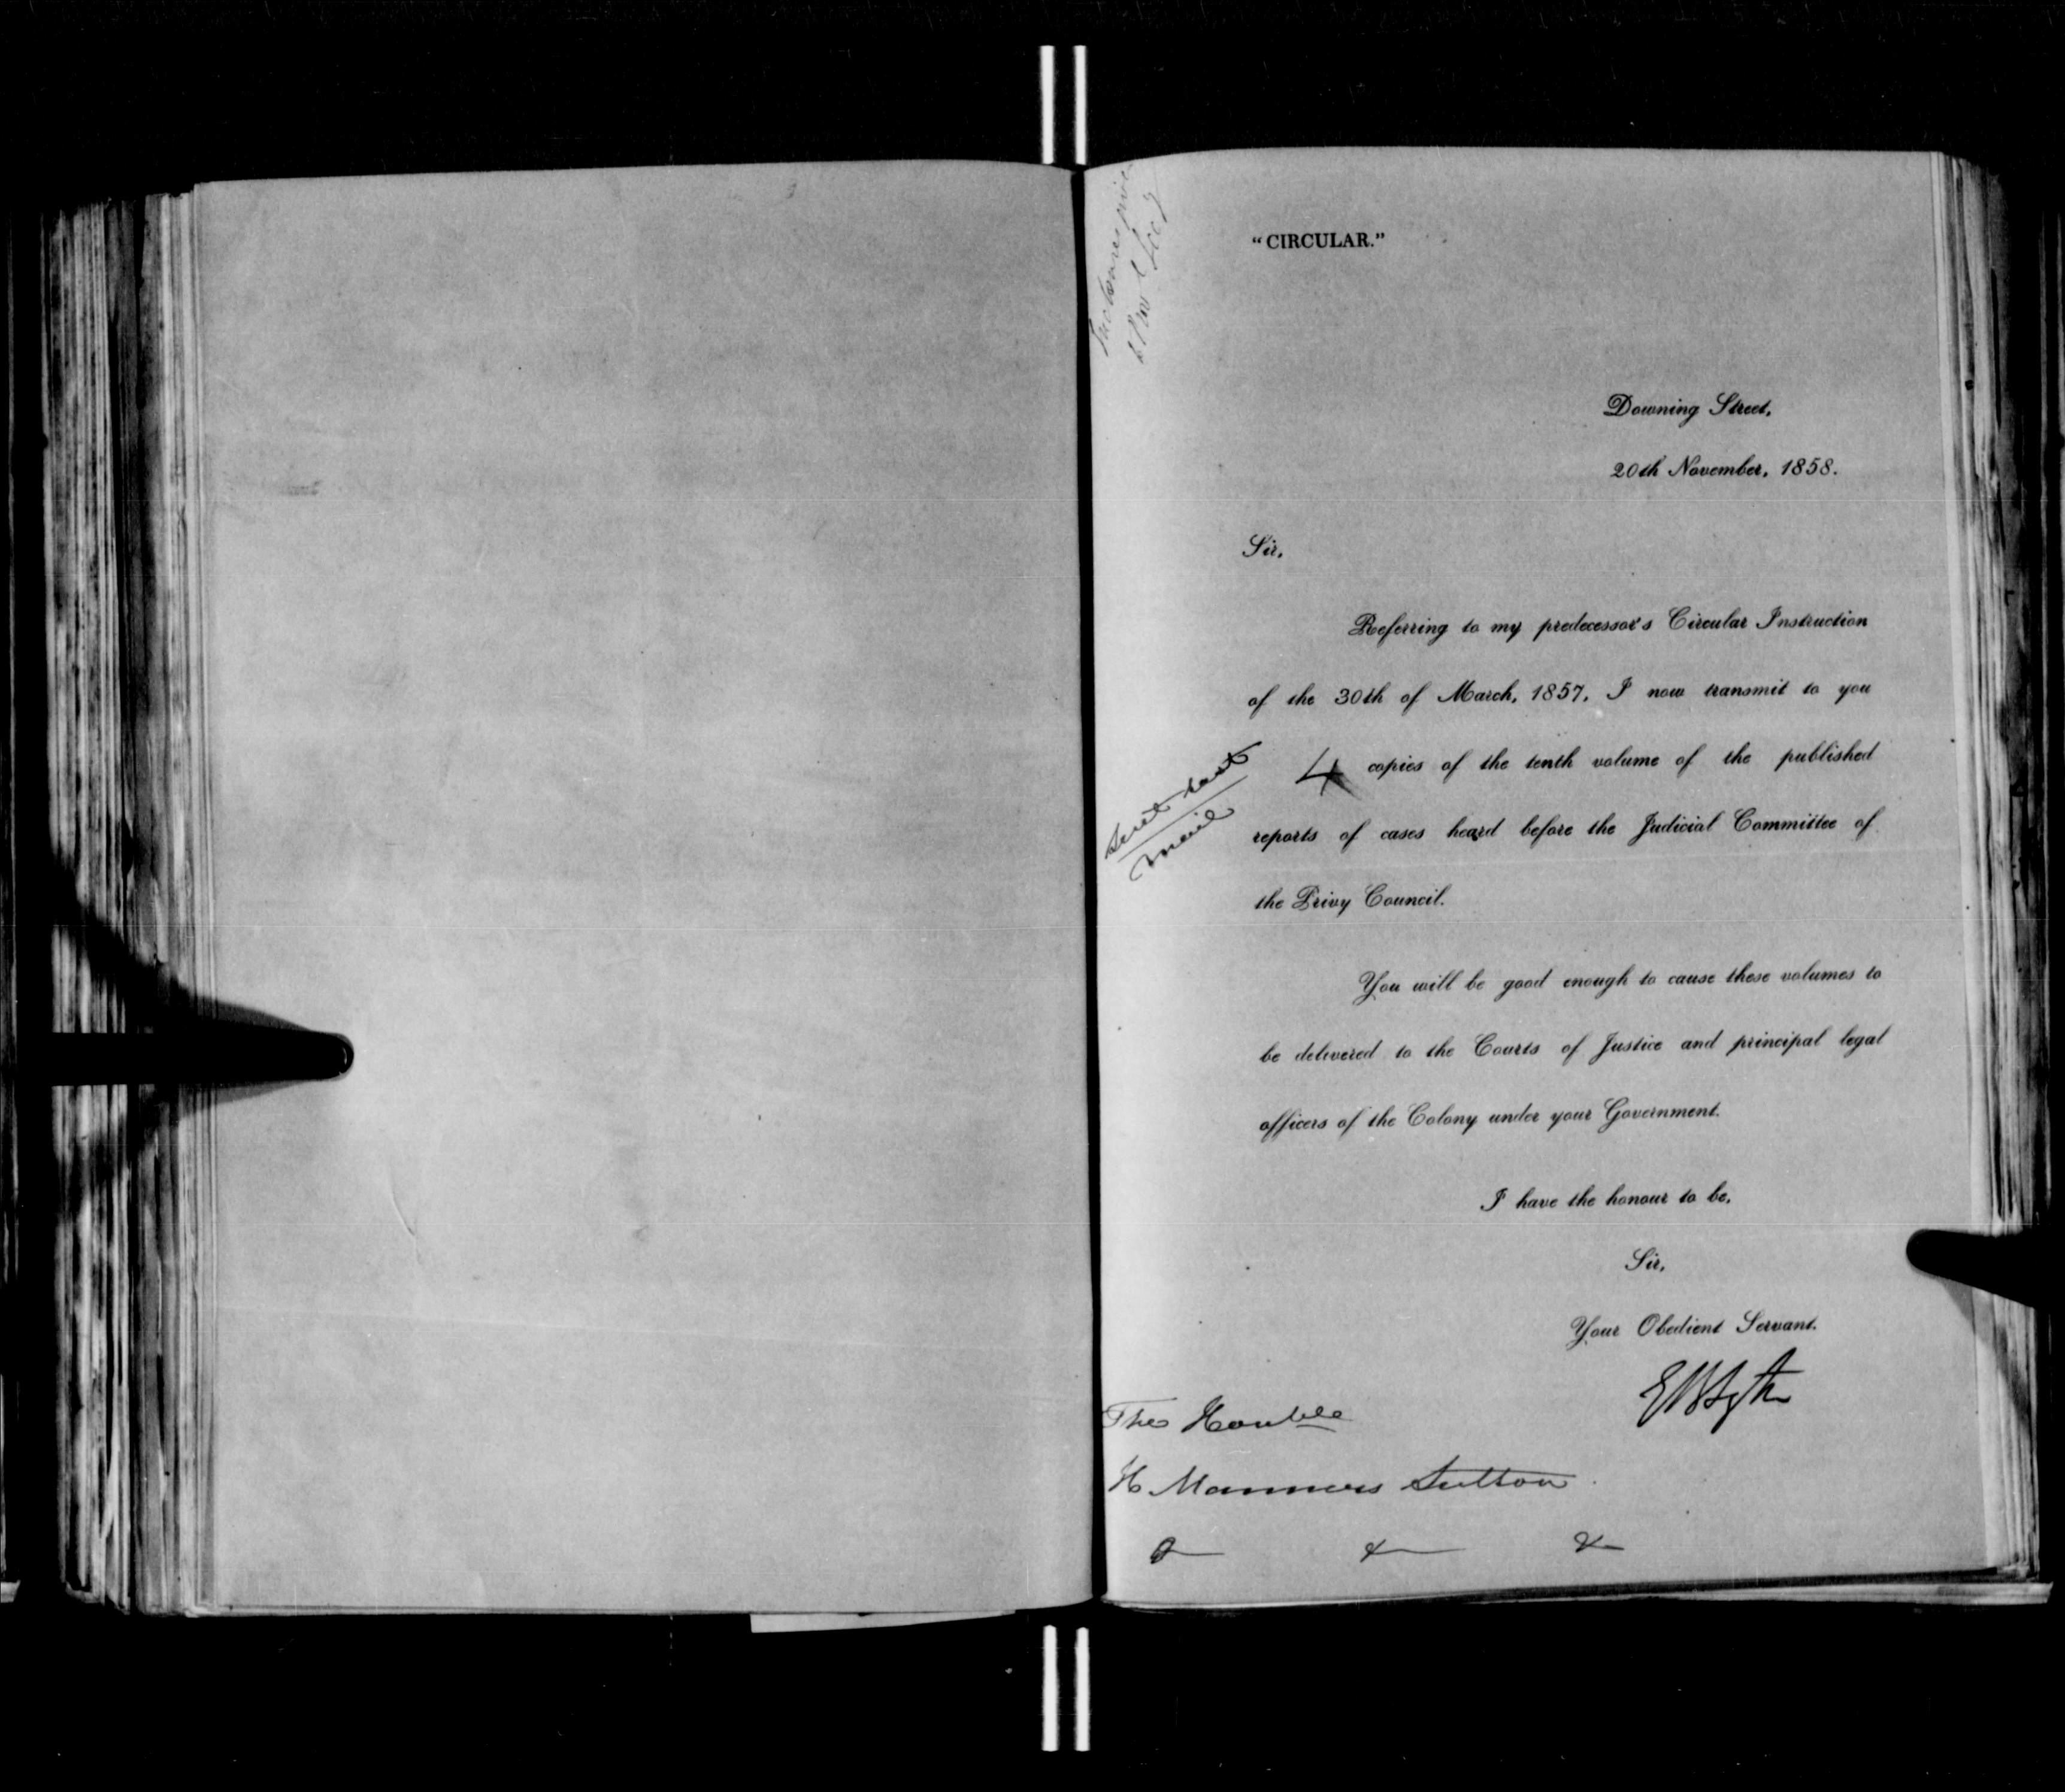 Inclosures
to Prov l Secy
"CIRCULAR."
Downing Street,
20th November, 1858.
Sir,
Referring to my predecessor's Circular Instruction
of the 30th of March, 1857, I now transmit to you
4 copies of the tenth volume of the published
reports of cases heard before the Judicial Committee of
the Privy Council.
Sent last
mail
You will be good enough to cause these volumes to
be delivered to the Courts of Justice and principal legal
officers of the Colony under your Government.
I have the honour to be,
Sir,
Your Obedient Servant.
EBLytton
The Honble
H Manners Sutton
& & &